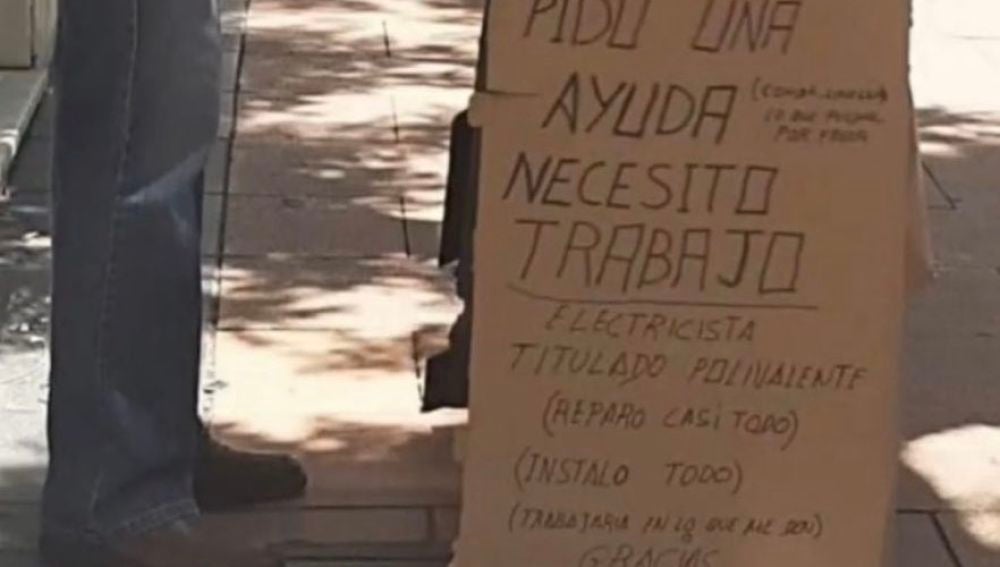 PIDO UNA
AYUDA
LO QUE PUEDAN
POR FAVOR
NECESITO
TRABAJO
ELECTRICISTA
TITULADO POLIVALENTE
(REPARO CASI TODO)
(INSTALO TODO)
(TRABAJARIA EN LO QUE ME DEN)
GRACIAS